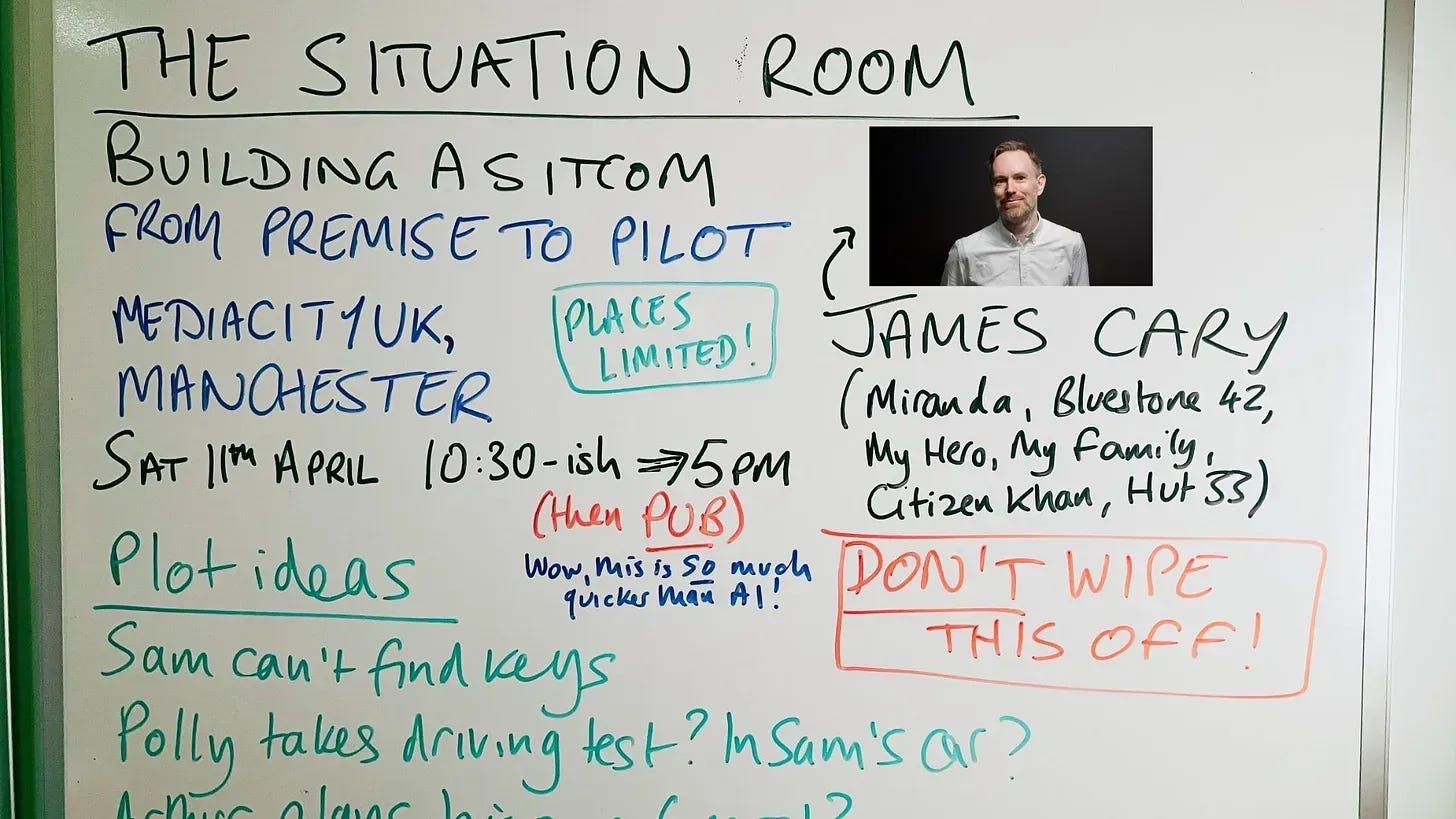 THE SITUATION ROOM
BUILDING A SITCOM
FROM PREMISE TO PILOT
MEDIACITYUK,
MANCHESTER
PLACES
LIMITED!
SAT 11TH APRIL 10:30-ish ⇒ 5PM
(then PUB)
Wow, this is so much
quicker than AI!
JAMES CARY
(Miranda, Bluestone 42,
My Hero, My Family,
Citizen Khan, Hut 33)
DON'T WIPE
THIS OFF!
Plot ideas
Sam can't find keys
Polly takes driving test? In Sam's car?
plans